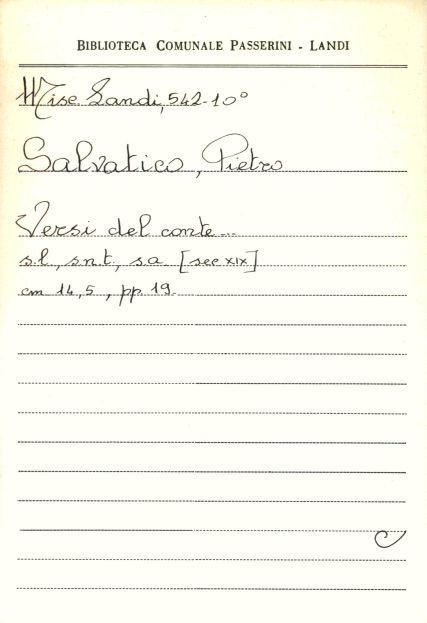 BIBLIOTECA COMUNALE PASSERINI - LANDI
Misc. Landi, 542-10°
Salvatico, Pietro
Versi del conte...
s.l., s.n.t., s.a. [sec XIX]
cm 14,5, pp. 19.